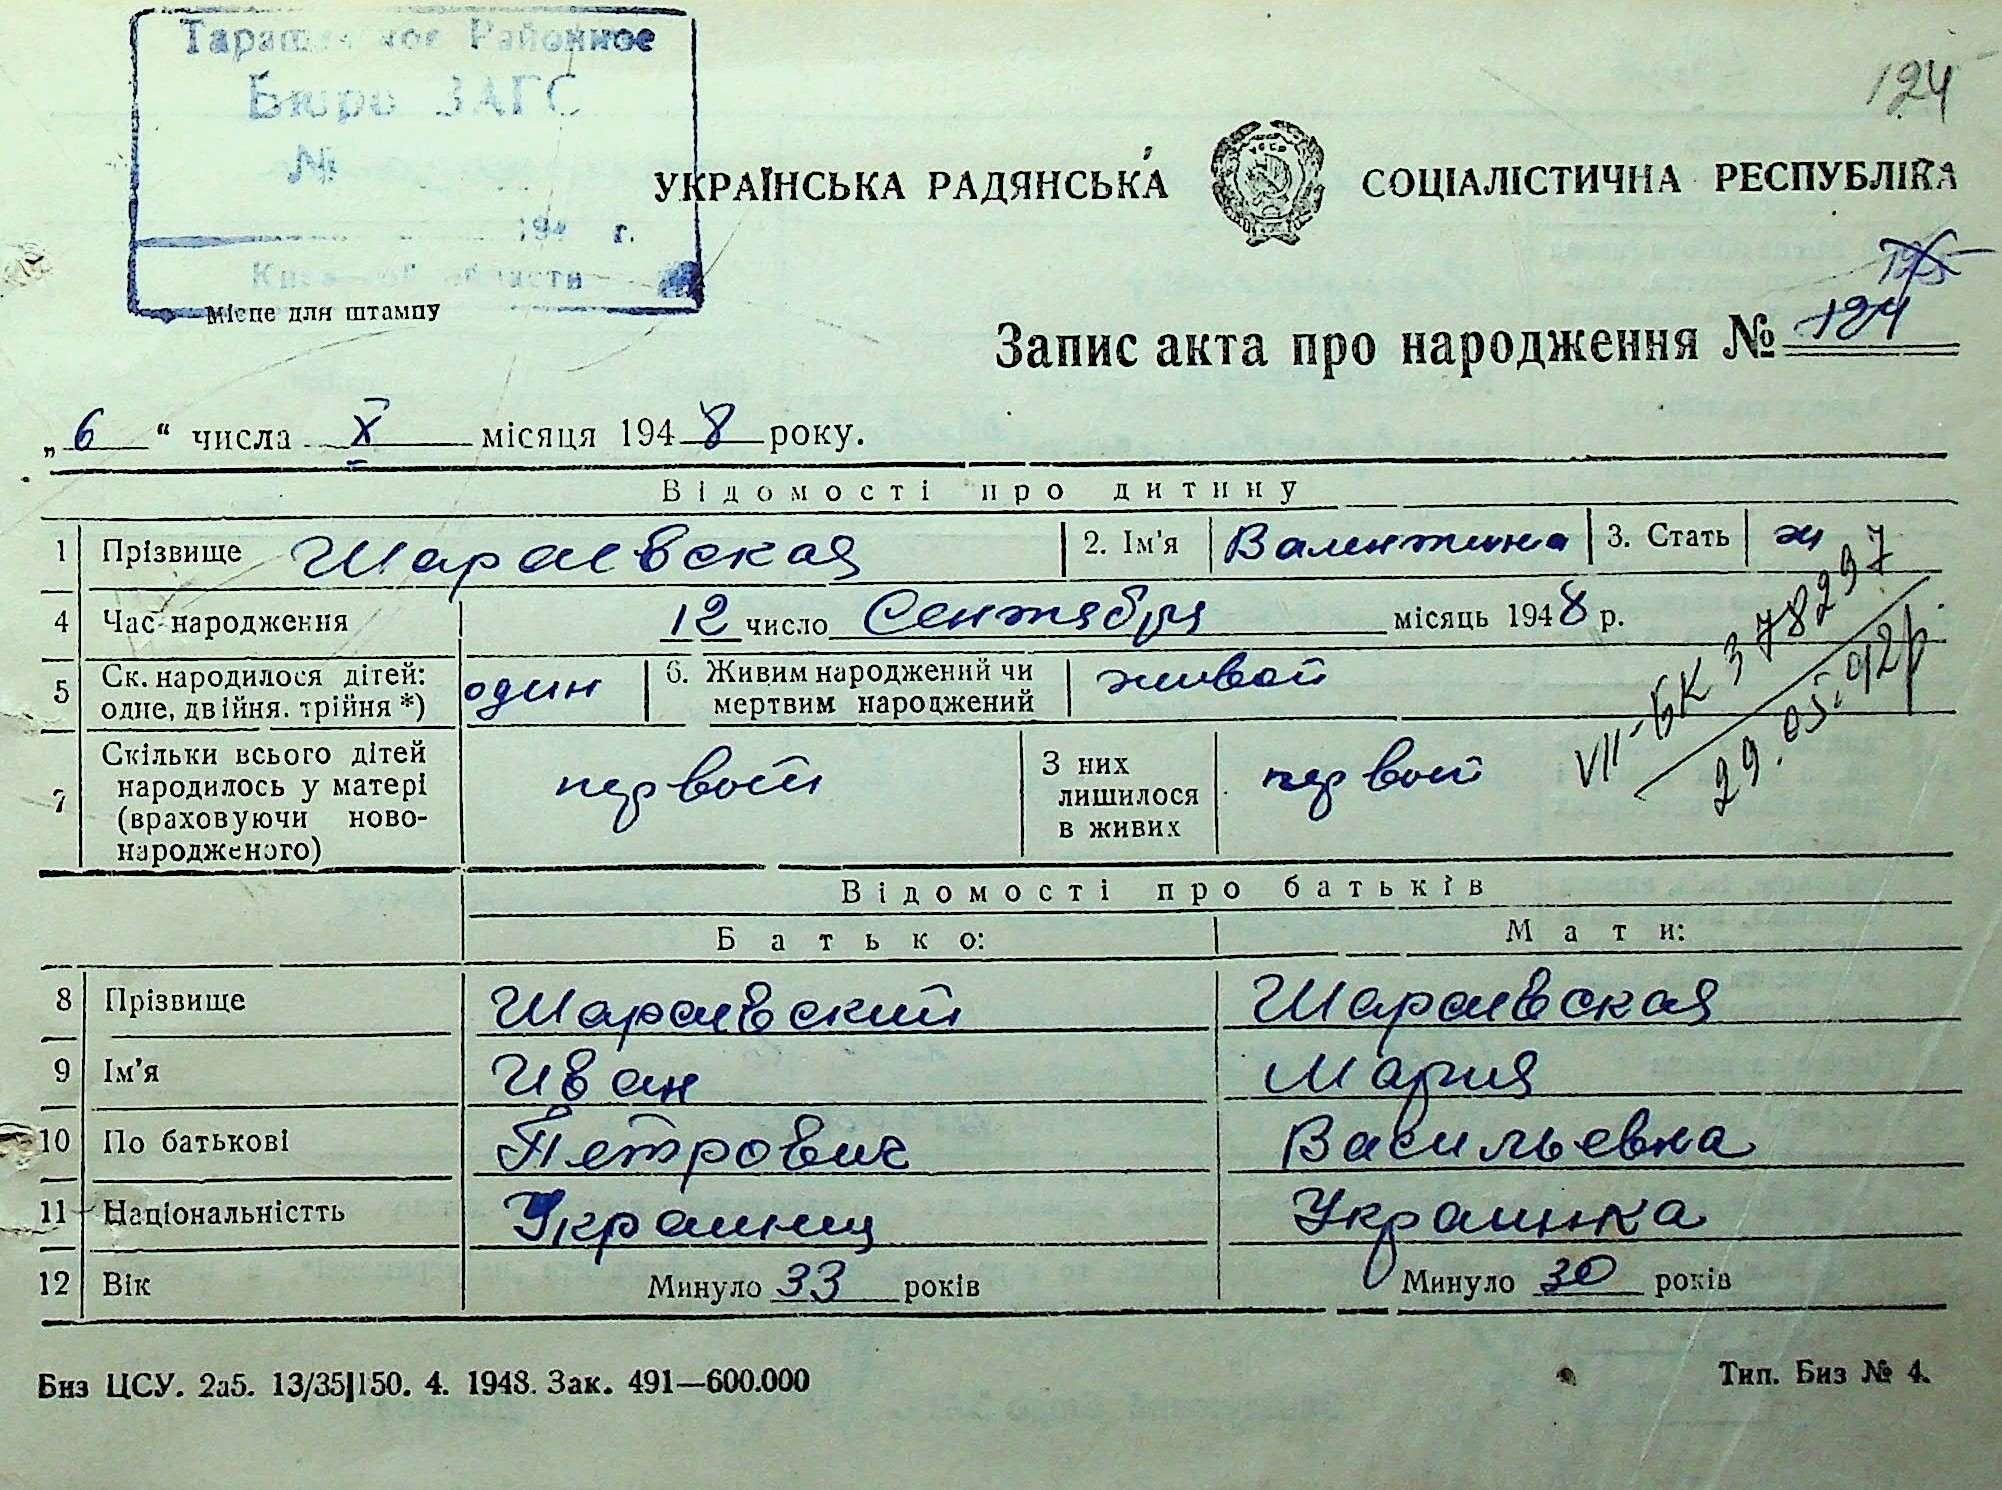 Районное
Бюро ЗАГС
№
194 г.
124
УКРАЇНСЬКА РАДЯНСЬКА СОЦІАЛІСТИЧНА РЕСПУБЛІКА
Місце для штампу
125
Запис акта про народження № 124
„6“ числа X місяця 1948 року.
Відомості про дитину
1 Прізвище Шараевская 2. Ім'я Валентина 3. Стать ж
4 Час народження 12 число Сентября місяць 1948 р.
5 Ск. народилося дітей: одне, двійня. трійня *) один 6. Живим народжений чи мертвим народжений живой
7 Скільки всього дітей народилось у матері (враховуючи ново-народженого) первой З них лишилося в живих первой
VII-БК 378297
29.05.92р.
Відомості про батьків
Батько: Мати:
8 Прізвище Шараевский Шараевская
9 Ім'я Иван Мария
10 По батькові Петрович Васильевна
11 Національністть Украинец Украинка
12 Вік Минуло 33 років Минуло 30 років
Биз ЦСУ. 2а5. 13/35|150. 4. 1948. Зак. 491—600.000 Тип. Биз № 4.